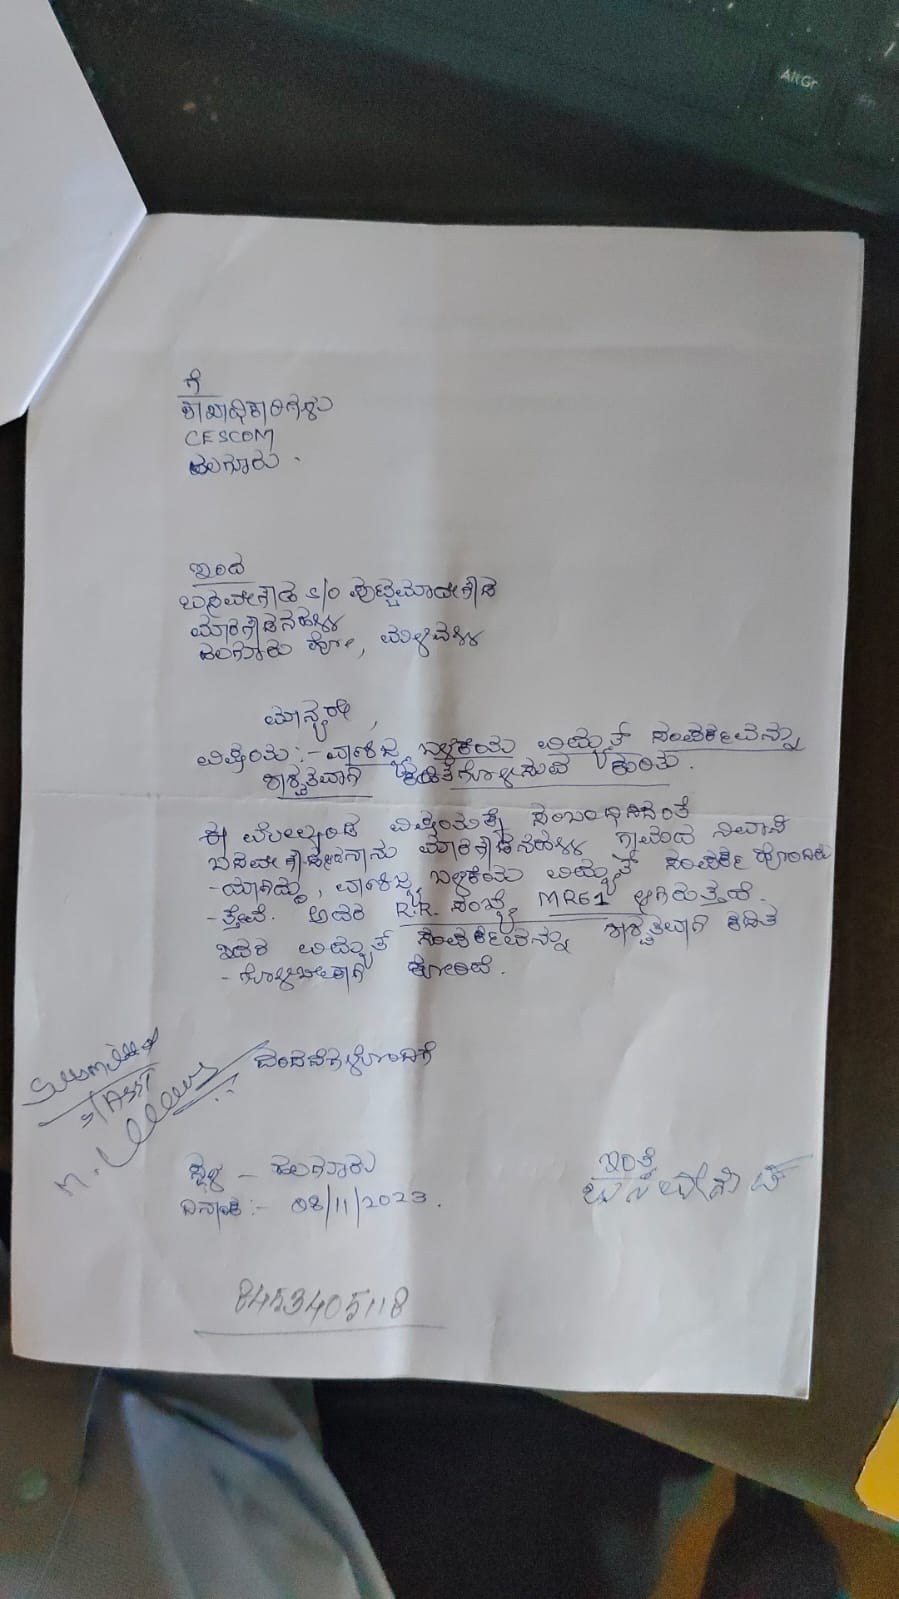 ಗೆ
ಶಾಖಾಧಿಕಾರಿಗಳು
CESCOM
ಹಲಗೂರು.
ಇಂದ
ಬಸವೇಗೌಡ S/O ಪುಟ್ಟಮಾದೇಗೌಡ
ಮಾರಗೌಡನಹಳ್ಳಿ
ಹಲಗೂರು ಹೋ, ಮಳವಳ್ಳಿ
ಮಾನ್ಯರೇ,
ವಿಷಯ:- ವಾಣಿಜ್ಯ ಬಳಕೆಯ ವಿದ್ಯುತ್ ಸಂಪರ್ಕವನ್ನು
ಶಾಶ್ವತವಾಗಿ ಕಡಿತಗೊಳಿಸುವ ಕುರಿತು.
ಈ ಮೇಲ್ಕಂಡ ವಿಷಯಕ್ಕೆ ಸಂಬಂಧಿಸಿದಂತೆ
ಬಸವೇಗೌಡನಾದ ನಾನು ಮಾರಗೌಡನಹಳ್ಳಿ ಗ್ರಾಮದ ನಿವಾಸಿ
-ಯಾಗಿದ್ದು, ವಾಣಿಜ್ಯ ಬಳಕೆಯ ವಿದ್ಯುತ್ ಸಂಪರ್ಕ ಹೊಂದಿರು
-ತ್ತೇನೆ. ಅದರ R.R. ಸಂಖ್ಯೆ MR61 ಆಗಿರುತ್ತದೆ.
ಇದರ ವಿದ್ಯುತ್ ಸಂಪರ್ಕವನ್ನು ಶಾಶ್ವತವಾಗಿ ಕಡಿತ
-ಗೊಳಿಸಬೇಕಾಗಿ ಕೋರಿದೆ.
ವಂದನೆಗಳೊಂದಿಗೆ
ಸ್ಥಳ - ಹಲಗೂರು
ದಿನಾಂಕ:- 08/11/2023.
ಇಂತಿ
ಬಸವೇಗೌಡ
8453405118